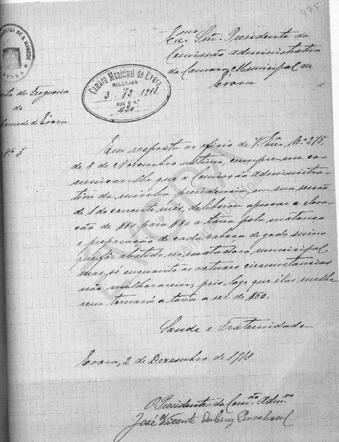 Exmo Snr. Presidente da
Comissão administrativa
da Camara Municipal de
Evora
Camara Municipal de Evora
3 12 1918
Junta de Freguesia
Nº 5
Em resposta ao oficio de V. Exa. Nº 275.
de 8 de Novembro ultimo, cumpre-me co-
municar-lhe que a Comissão administra-
tiva da minha presidencia, em sua sessão
de 1 do corrente mês, deliberou aprovar a eleva-
ção de para a taxa pela matança
e preparação de cada cabeça de gado suino
que fôr abatido no matadouro municipal,
mas só enquanto as actuais circunstancias
não melhorarem, pois logo que elas melho-
rem tornará a taxa a ser de
Saude e Fraternidade
Evora, 2 de Dezembro de 1918
O Presidente da Comão Admva
José Vicente